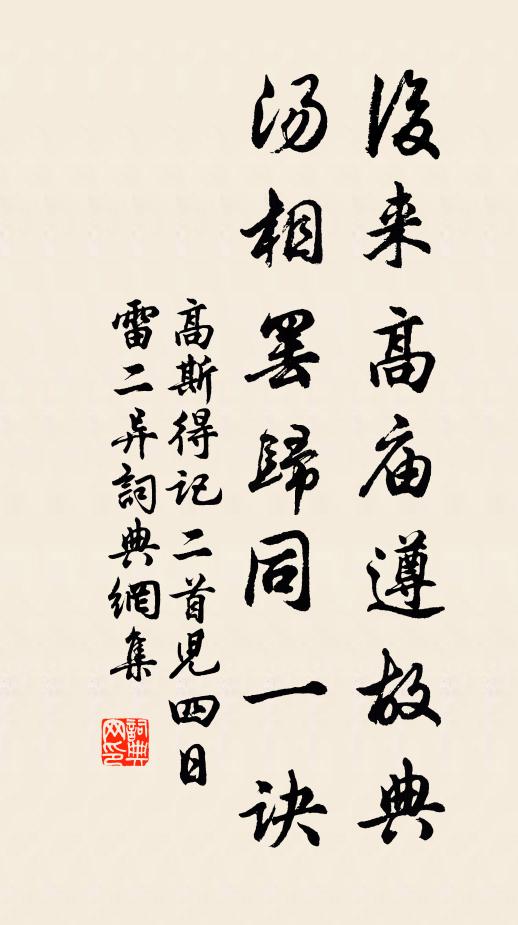 後来高庙遵故典
汤相罢歸同一诀
高斯得记二首児四日
雷二异詞典網集
詞典网印